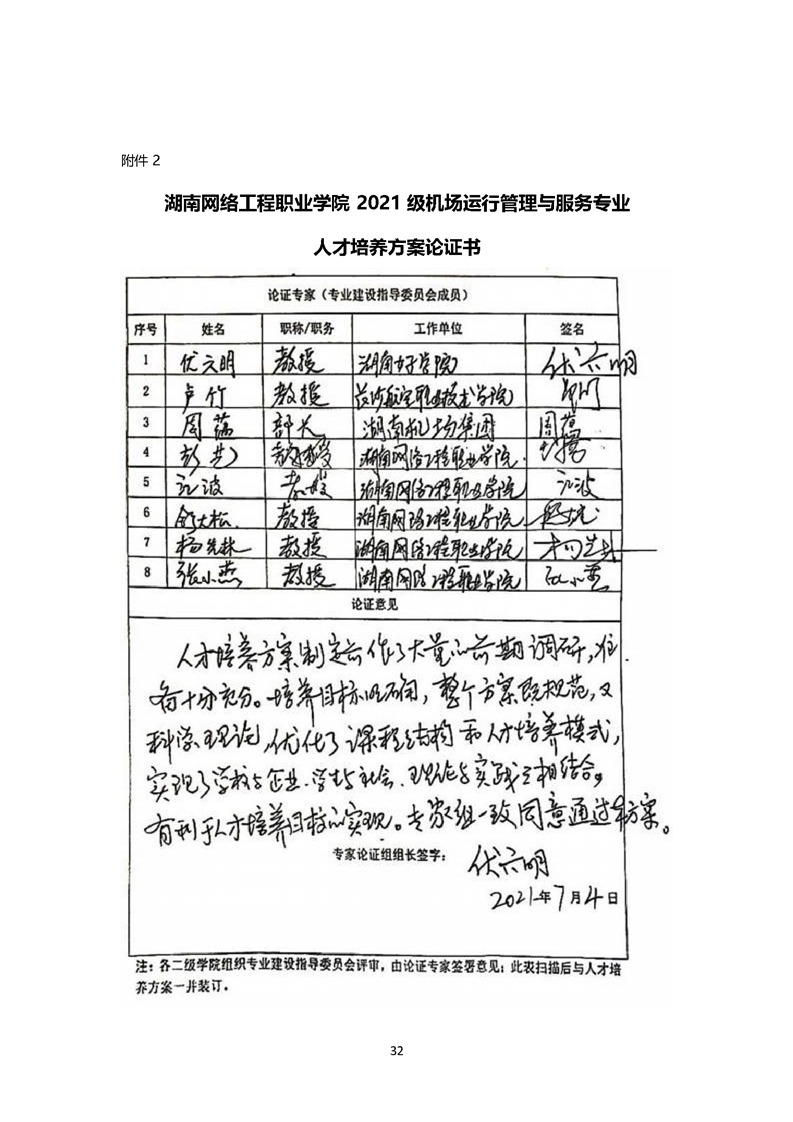 附件 2
湖南网络工程职业学院 2021 级机场运行管理与服务专业
人才培养方案论证书
论证专家（专业建设指导委员会成员）
序号 姓名 职称/职务 工作单位 签名
1 伏六明 教授 湖南女子学院 伏六明
2 卢竹 教授 长沙航空职业技术学院
3 周蔼 部长 湖南机场集团 周蔼
4 彭 副教授 湖南网络工程职业学院
5 江波 教授 湖南网络工程职业学院 江波
6 舒大松 教授 湖南网络工程职业学院
7 杨先林 教授 湖南网络工程职业学院
8 张小燕 教授 湖南网络工程职业学院 张小燕
论证意见
人才培养方案制定前作了大量的前期调研，准
备十分充分。培养目标明确，整个方案既规范，又
科学理论，优化了课程结构和人才培养模式，
实现了学校与企业、学生与社会、理论与实践互相结合，
有利于人才培养目标的实现。专家组一致同意通过本方案。
专家论证组组长签字： 伏六明
2021年7月4日
注：各二级学院组织专业建设指导委员会评审，由论证专家签署意见；此表扫描后与人才培
养方案一并装订。
32